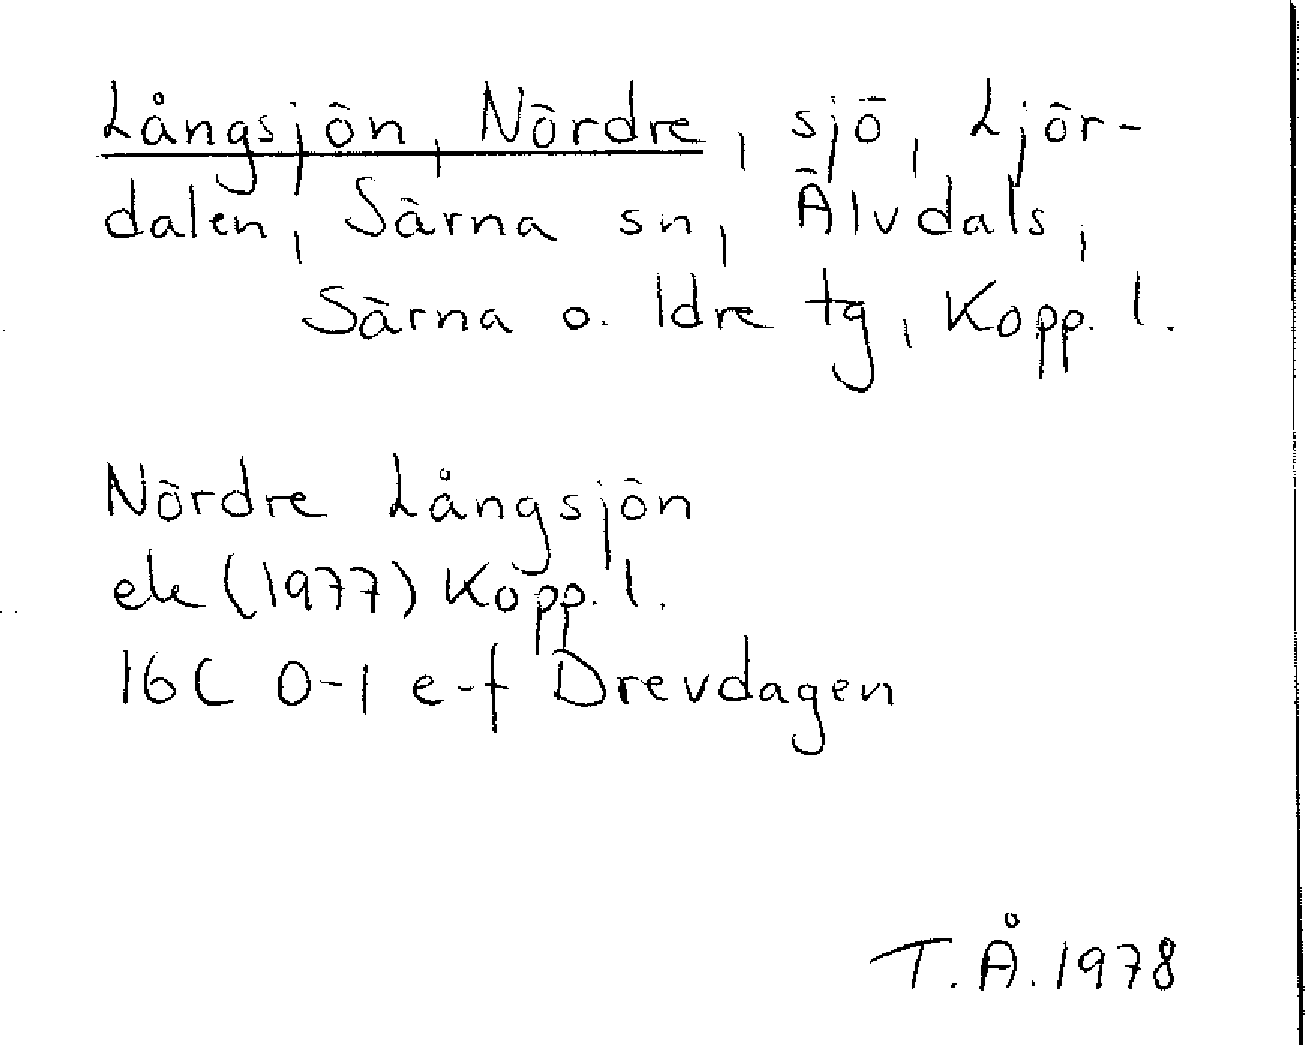 Långsjön, Nördre, sjö, Ljör-
dalen, Särna sn, Älvdals,
Särna o. Idre tg, Kopp. l.
Nördre Långsjön
ek (1977) Kopp. l.
16C 0-1 e-f Drevdagen
T. Å. 1978